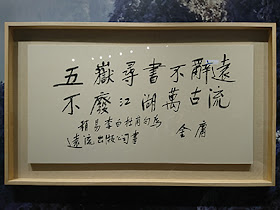 五嶽尋書不辭遠
不廢江湖萬古流
題易李白杜甫句為
遠流出版公司書
金庸